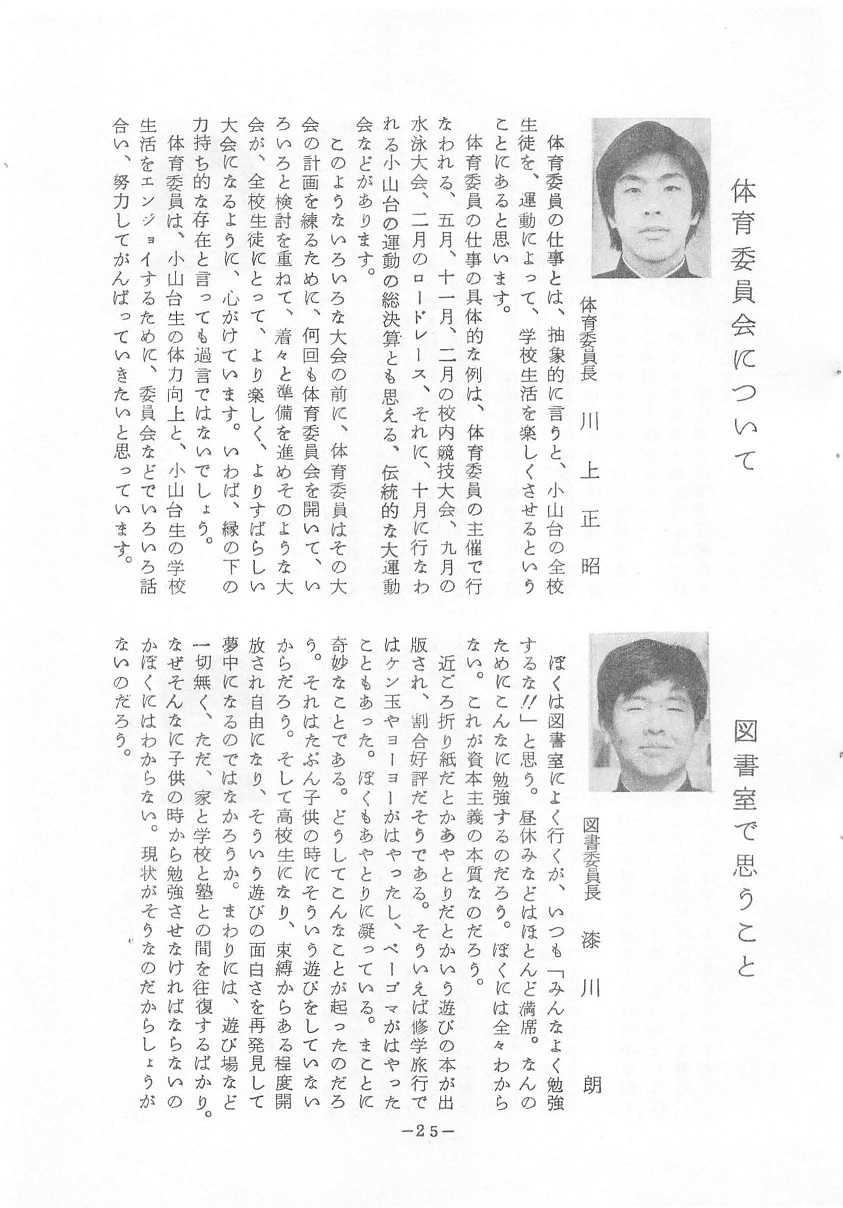 体育委員会について
体育委員長　川上正昭
体育委員の仕事とは、抽象的に言うと、小山台の全校
生徒を、運動によって、学校生活を楽しくさせるという
ことにあると思います。
体育委員の仕事の具体的な例は、体育委員の主催で行
なわれる、五月、十一月、二月の校内競技大会、九月の
水泳大会、二月のロードレース、それに、十月に行なわ
れる小山台の運動の総決算とも思える、伝統的な大運動
会などがあります。
このようないろいろな大会の前に、体育委員はその大
会の計画を練るために、何回も体育委員会を開いて、い
ろいろと検討を重ねて、着々と準備を進めそのような大
会が、全校生徒にとって、より楽しく、よりすばらしい
大会になるように、心がけています。いわば、縁の下の
力持ち的な存在と言っても過言ではないでしょう。
体育委員は、小山台生の体力向上と、小山台生の学校
生活をエンジョイするために、委員会などでいろいろ話
合い、努力してがんばっていきたいと思っています。
図書室で思うこと
図書委員長　漆川　朗
ぼくは図書室によく行くが、いつも「みんなよく勉強
するな!!」と思う。昼休みなどはほとんど満席。なんの
ためにこんなに勉強するのだろう。ぼくには全々わから
ない。これが資本主義の本質なのだろう。
近ごろ折り紙だとかあやとりだとかいう遊びの本が出
版され、割合好評だそうである。そういえば修学旅行で
はケン玉やヨーヨーがはやったし、ベーゴマがはやった
こともあった。ぼくもあやとりに凝っている。まことに
奇妙なことである。どうしてこんなことが起ったのだろ
う。それはたぶん子供の時にそういう遊びをしていない
からだろう。そして高校生になり、束縛からある程度開
放され自由になり、そういう遊びの面白さを再発見して
夢中になるのではなかろうか。まわりには、遊び場など
一切無く、ただ、家と学校と塾との間を往復するばかり。
なぜそんなに子供の時から勉強させなければならないの
かぼくにはわからない。現状がそうなのだからしょうが
ないのだろう。
—25—